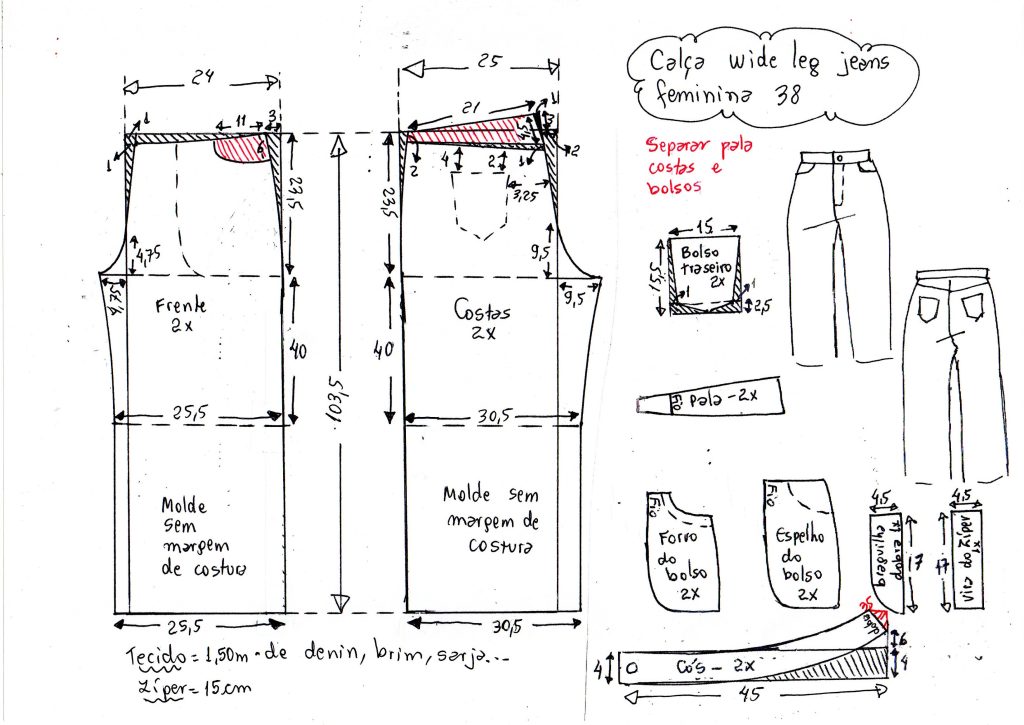 Calça wide leg jeans
feminina 38
Separar pala
costas e
bolsos
24
11
3
1
1
6
27,5
4,75
4,75
Frente
2x
40
25,5
Molde
sem
margem
de costura
25,5
103,5
25
21
4,5
3
1
2
2
4
2
1
3,25
23,5
9,5
9,5
Costas
2x
40
30,5
Molde sem
margem de
costura
30,5
15
15,5
Bolso
traseiro
2x
1
1
2,5
Fio
pala - 2x
Fio
Forro
do
bolso
2x
Fio
Espelho
do
bolso
2x
4,5
Braguilha
dobra x1
17
4,5
17
Vira do Zíper
x1
dobra
6
4
4
Cós - 2x
45
Tecido = 1,50m de denin, brim, sarja...
Zíper = 15cm